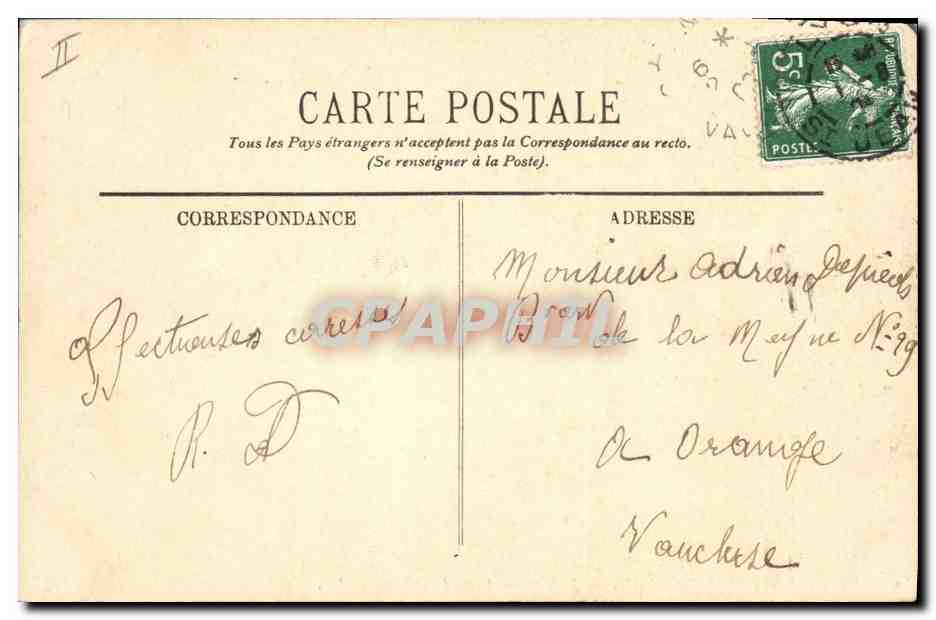 II
CARTE POSTALE
Tous les Pays étrangers n'acceptent pas la Correspondance au recto.
(Se renseigner à la Poste).
CORRESPONDANCE
Affectueuses caresses
R. D
ADRESSE
Monsieur Adrien
de la Meyne No. 99
A Orange
Vaucluse
5c
POSTES
CPAPHIL